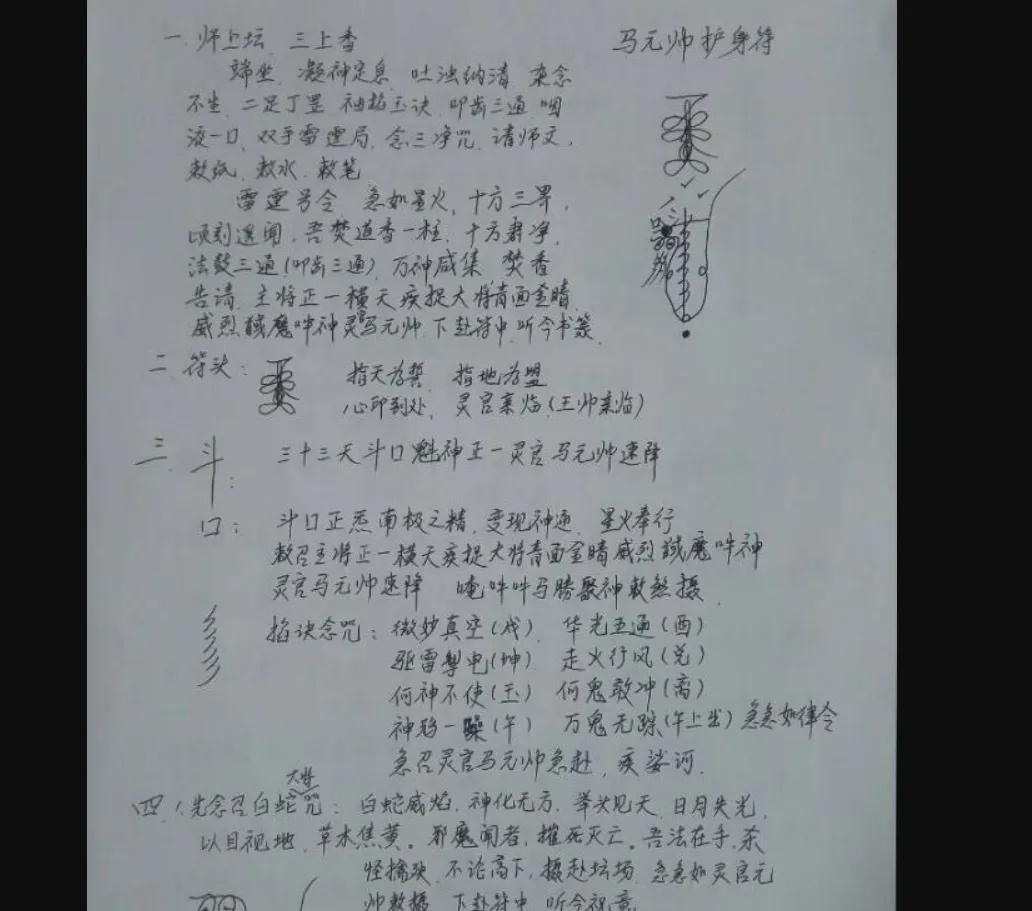 一、师上坛、三上香
马元帅护身符
端坐、凝神定息、吐浊纳清、杂念
不生、二足丁罡、袖掐玉诀、叩齿三通、咽
液一口、双手雷霆局、念三净咒、请师文、
敕纸、敕水、敕笔
雷霆号令、急如星火、十方三界、
顷刻遥闻、吾焚道香一柱、十方肃净、
法鼓三通(叩齿三通)、万神咸集、焚香
告请、主将正一横天疾捉大将青面金睛
威烈馘魔吽神灵官马元帅、下赴符中、听令书篆、
二、符头:
指天为誓、指地为盟
心印到处、灵官亲临(王帅亲临)
三、斗:
三十三天斗口魁神正一灵官马元帅速降
口:
斗口正炁南极之精、变现神通、星火奉行
敕召主将正一横天疾捉大将青面金睛威烈馘魔吽神
灵官马元帅速降 唵吽吽马胜聚神敕煞摄
掐诀念咒:微妙真空(戌)、华光五通(酉)
驱雷掣电(坤)、走火行风(兑)
何神不使(玉)、何鬼敢冲(离)
神鸦一噪(午)、万鬼无踪(午上出)急急如律令
急召灵官马元帅急赴、疾娑诃.
大将
四、先念召白蛇咒:白蛇威焰、神化无方、举头见天、日月失光、
以目视地、草木焦黄。邪魔闻者、摧死灭亡。吾法在手、杀
怪擒妖、不论高下、摄赴坛场、急急如灵官元
帅敕摄、下赴符中、听令祝意.